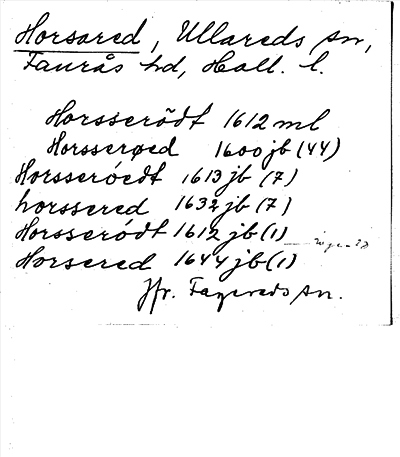 Horsared, Ullareds sn,
Faurås hd, Hall. l.
Horsserödt 1612 ml
Horsserøed 1600 jb (44)
Horsseróedt 1613 jb (7)
horssered 1632 jb (7)
Horsserödt 1612 jb (1)
Horsered 1644 jb (1)
Jfr. Fagereds sn.